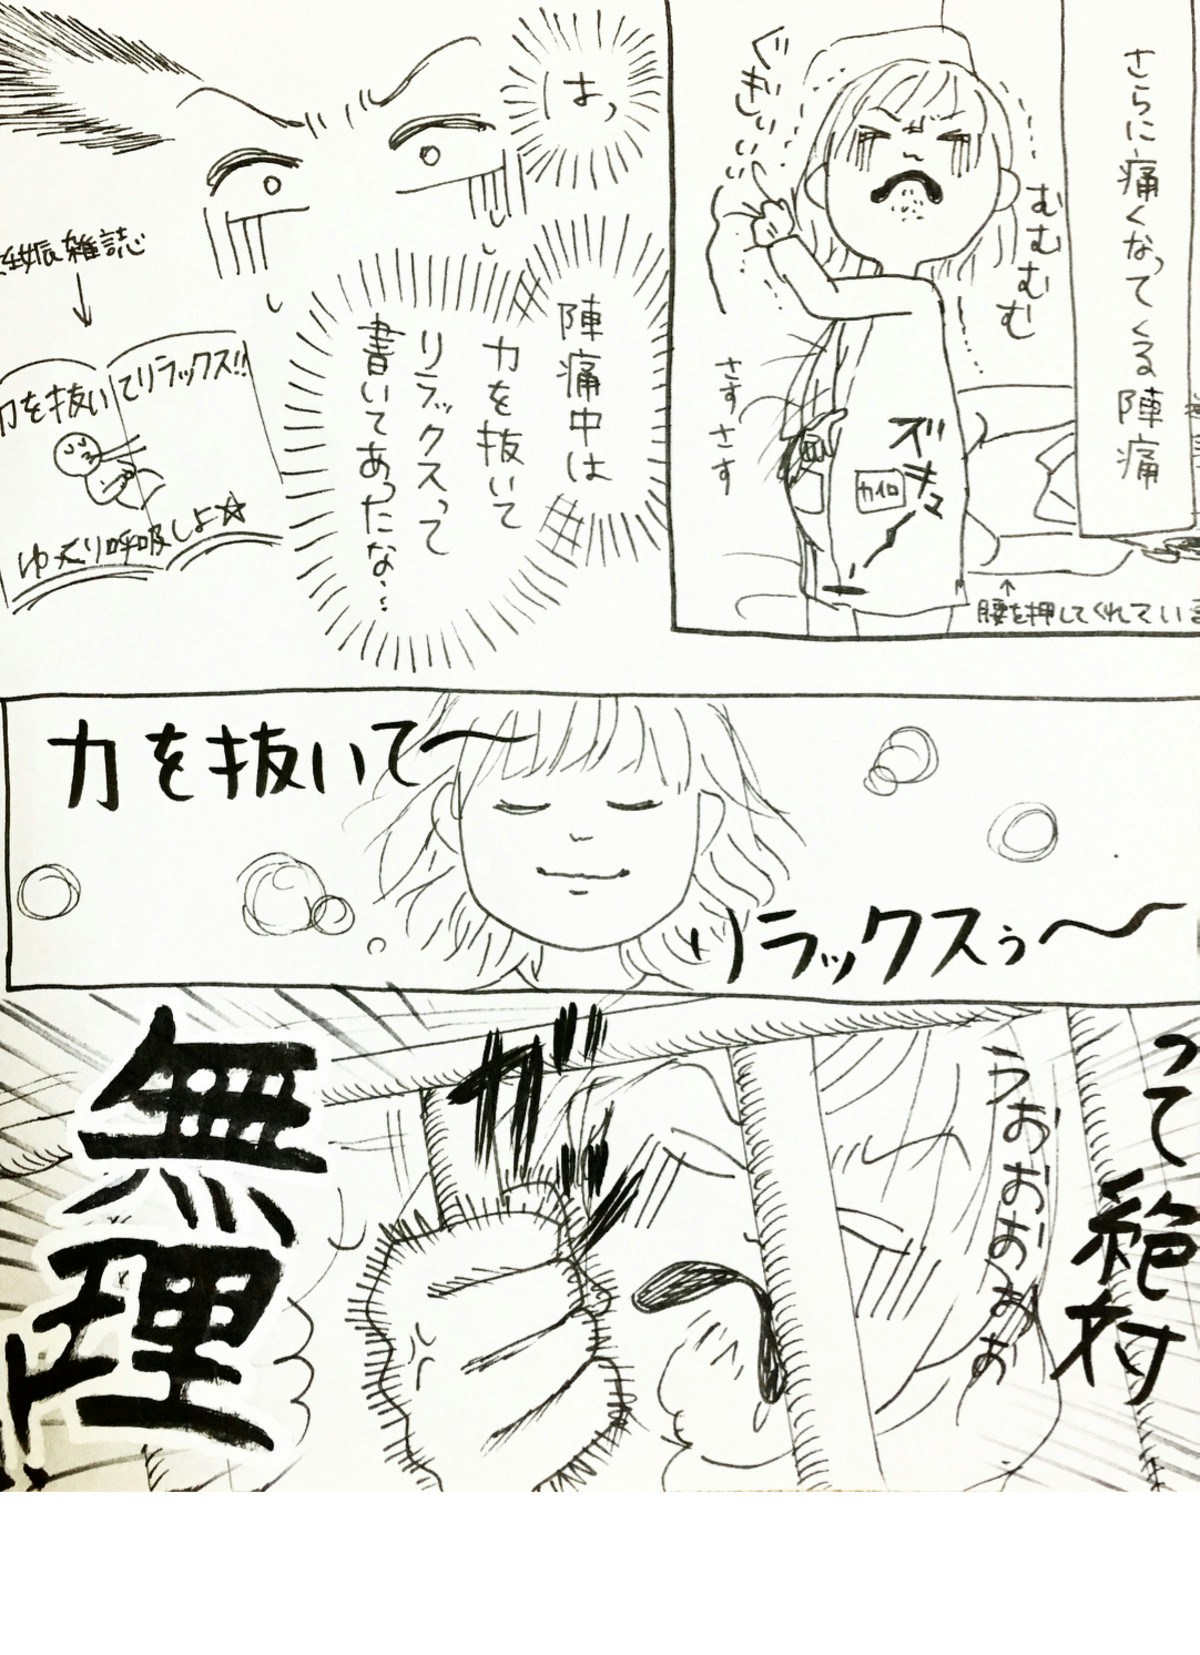 さらに痛くなってくる陣痛
ぐぎぃぃ
むむむむ
さすさす
ズキッ
カイロ
腰を押してくれている
はっ
陣痛中は
力を抜いて
リラックスって
書いてあったな…
妊娠雑誌
力を抜いてリラックス!!
ゆっくり呼吸しよ☆
力を抜いて〜
リラックスぅ〜
って絶対
うおおおおぉぉ
ガシッ
無理